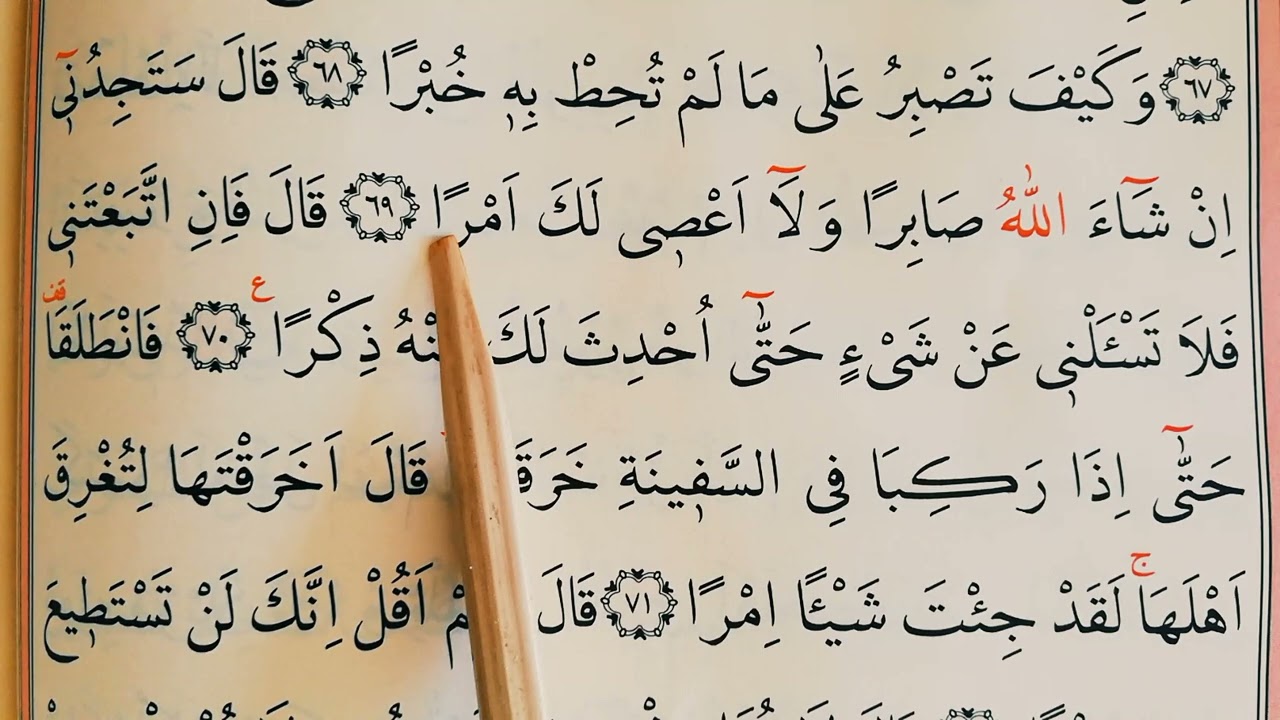 ﴿٦٧﴾ وَكَيْفَ تَصْبِرُ عَلٰى مَا لَمْ تُحِطْ بِه۪ خُبْرًا ﴿٦٨﴾ قَالَ سَتَجِدُن۪ٓي
اِنْ شَٓاءَ اللّٰهُ صَابِرًا وَلَٓا اَعْص۪ي لَكَ اَمْرًا ﴿٦٩﴾ قَالَ فَاِنِ اتَّبَعْتَن۪ي
فَلَا تَسْـَٔلْن۪ي عَنْ شَيْءٍ حَتّٰٓى اُحْدِثَ لَكَ ذِكْرًا ع ﴿٧٠﴾ فَانْطَلَقَا قف
حَتّٰٓى اِذَا رَكِبَا فِي السَّف۪ينَةِ قَالَ اَخَرَقْتَهَا لِتُغْرِقَ
اَهْلَهَا ج لَقَدْ جِئْتَ شَيْـًٔا اِمْرًا ﴿٧١﴾ قَالَ اَقُلْ اِنَّكَ لَنْ تَسْتَط۪يعَ